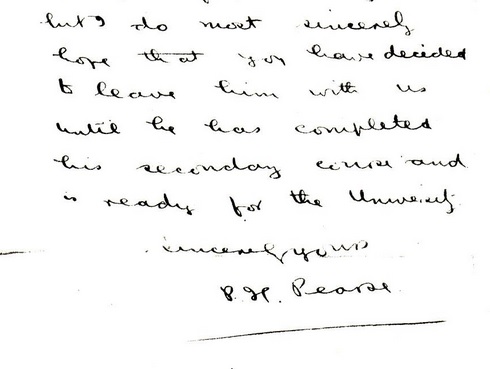 but I do most sincerely
hope that you have decided
to leave him with us
until he has completed
his secondary course and
is ready for the University.
Sincerely yours
P. H. Pearse.